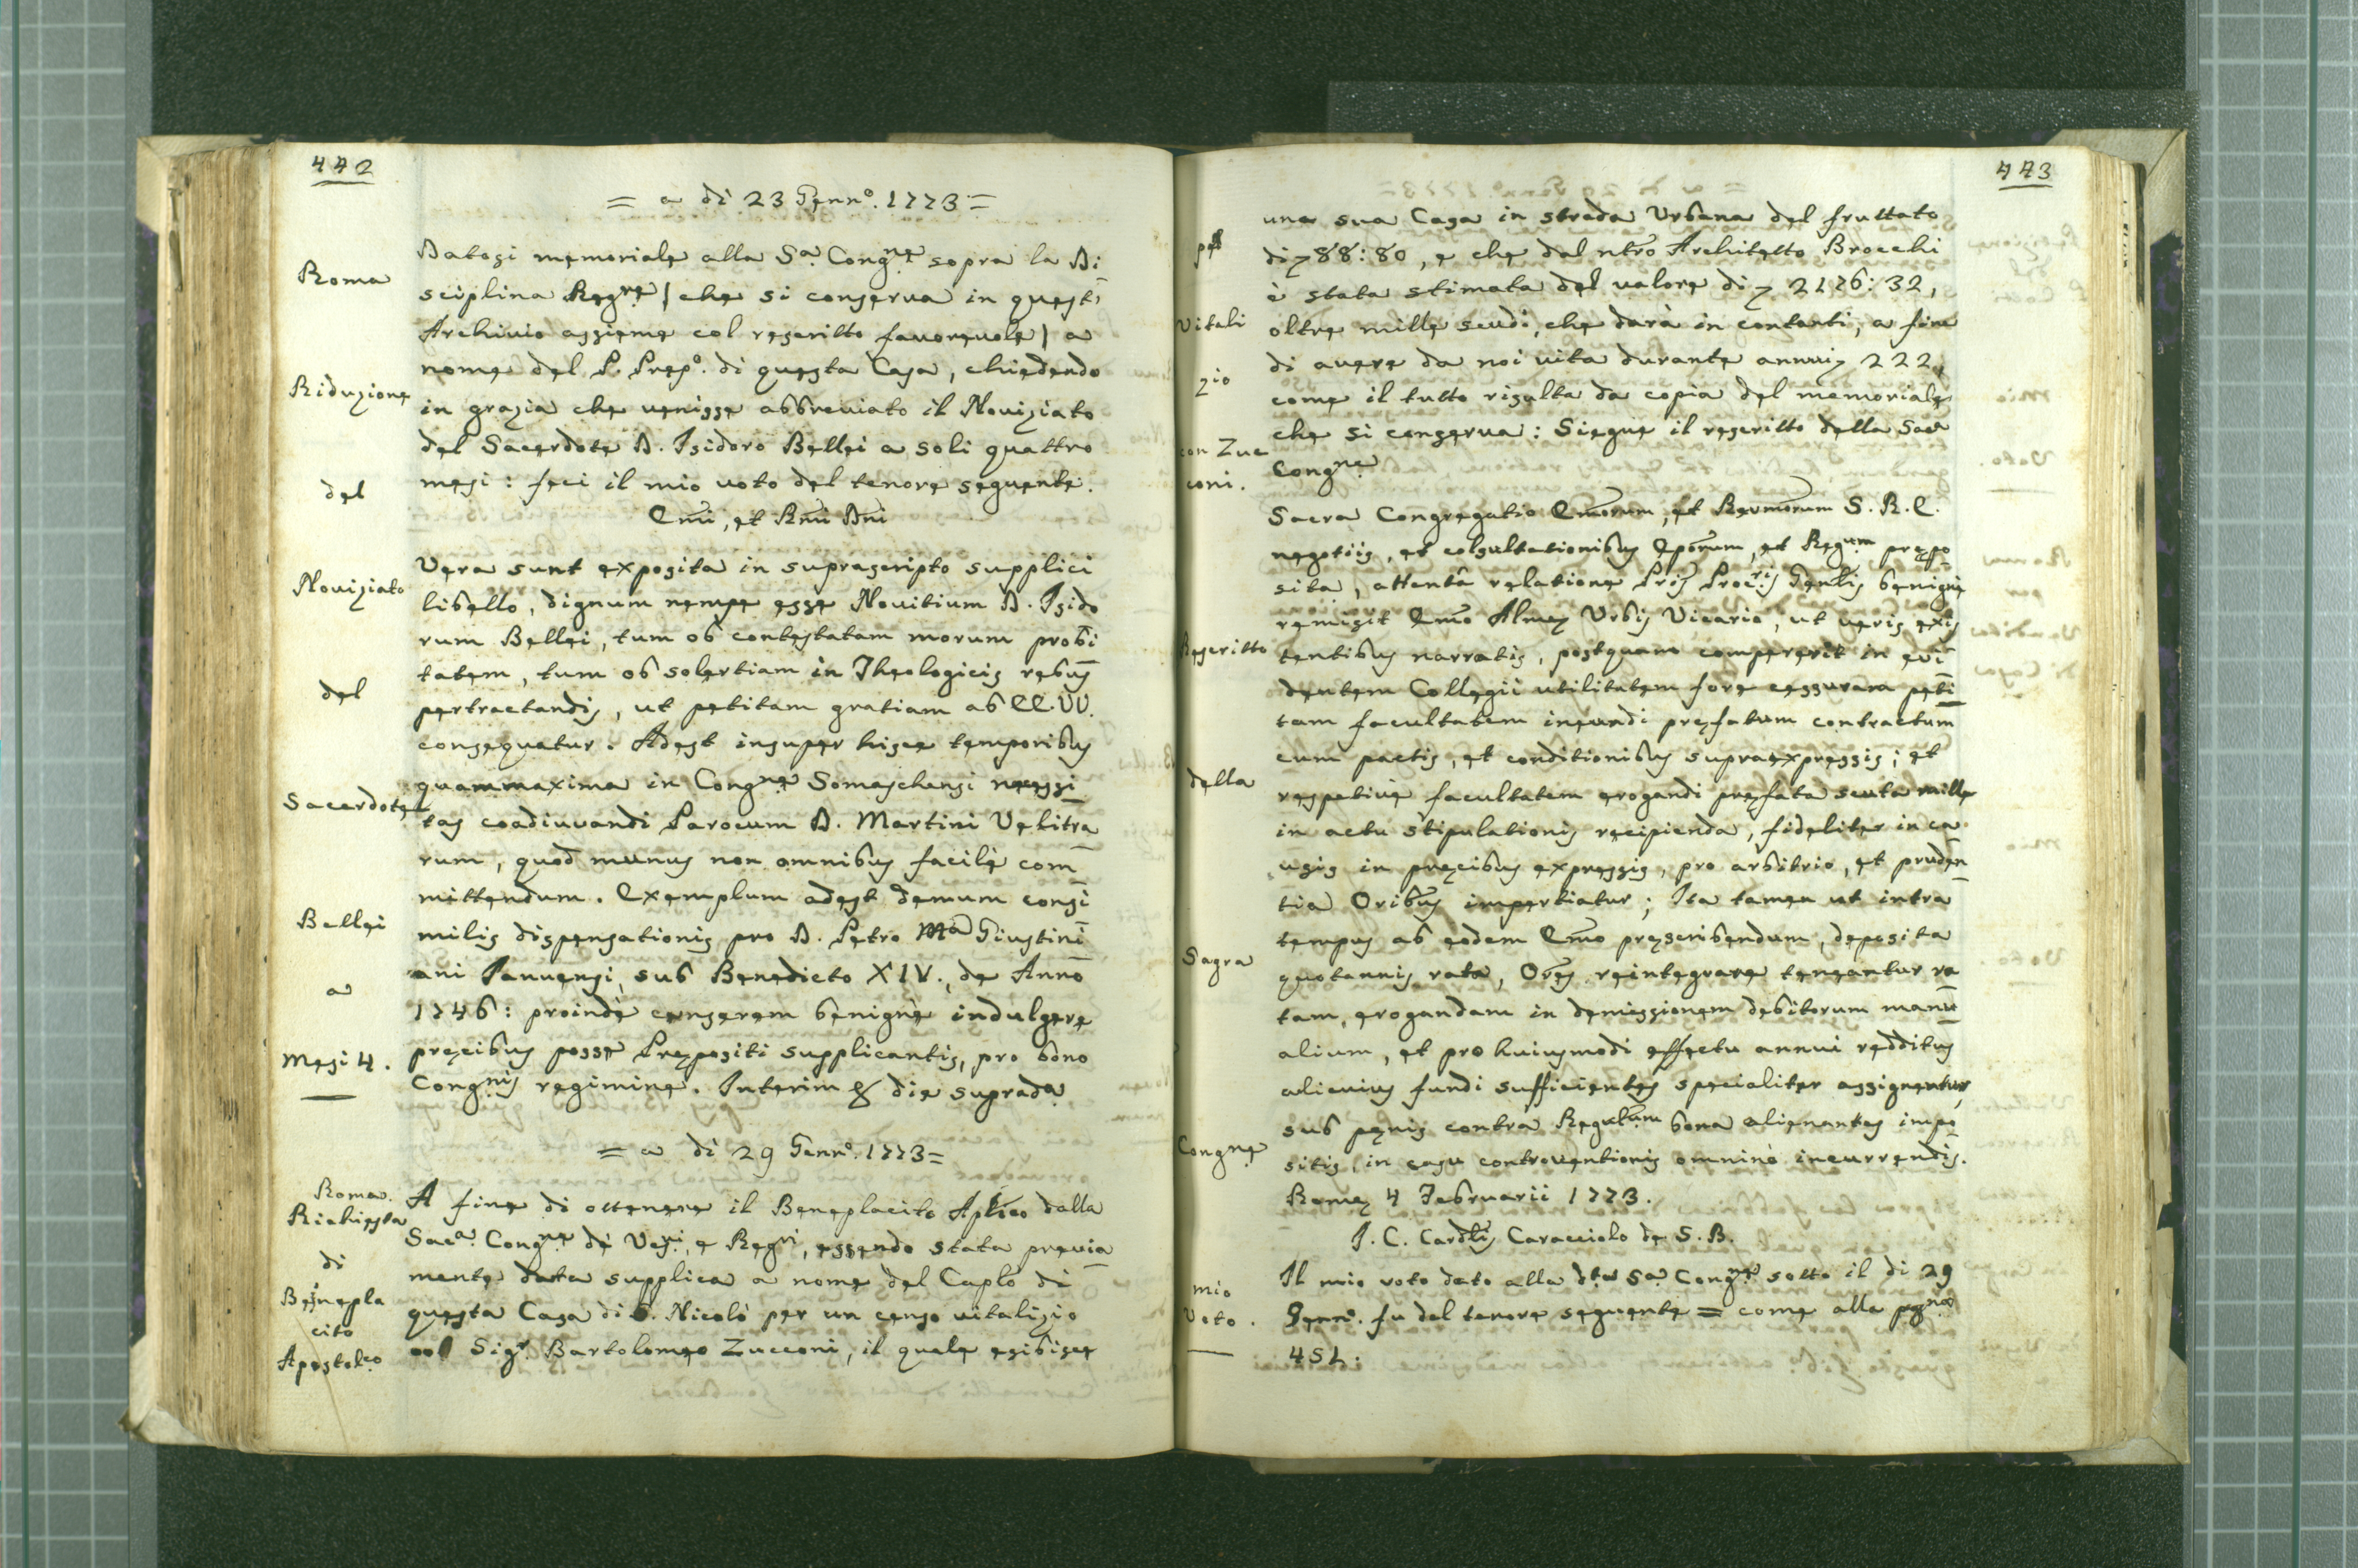 442
= a dì 23 Genn.º 1773 =
Roma
Riduzione
del
Noviziato
del
Sacerdote
Bellei
a
Mesi 4.
Datosi memoriale alla S.ª Cong.ne sopra la Di
sciplina Reg.re | che si conserva in quest'
Archivio assieme col rescritto favorevole | a
nome del P. Prep.º di questa Casa, chiedendo
in grazia che venisse abbreviato il Noviziato
del Sacerdote D. Isidoro Bellei a soli quattro
mesi: feci il mio voto del tenore seguente.
Emi, et Rmi Dni
Vera sunt exposita in suprascripto supplici
libello, dignum nempe esse Novitium D. Isido
rum Bellei, tum ob contestatam morum probi
tatem, tum ob solertiam in Theologicis rebus
pertractandis, ut petitam gratiam ab EE. VV.
consequatur. Adest insuper hisce temporibus
quammaxima in Cong.ne Somaschensi necessi
tas coadiuvandi Parocum D. Martini Velitra
rum, quod munus non omnibus facilè com
mittendum. Exemplum adest demum consi
milis dispensationis pro D. Petro Mª Giustini
ani Januensi, sub Benedicto XIV., de Anno
1746: proindè censerem benignè indulgere
precibus posse Prepositi supplicantis, pro bono
Cong.nis regimine. Interim & die suprada
= a dì 29 Genn.º 1773 =
Roma.
Richiesta
di
Benepla
cito
Apostol.co
A fine di ottenere il Beneplacito Aplico dalla
Sac.ª Cong.ne dè Ves.vi, e Reg.ri, essendo stata previa
mente data supplica a nome del Caplo di
questa Casa di S. Nicolò per un censo vitalizio
col Sig.r Bartolomeo Zucconi, il quale esibisce
443
per
Vitali
zio
con Zuc
coni.
Rescritto
della
Sagra
Cong.ne
mio
Voto.
una sua Casa in strada Urbana del fruttato
di 88:80, e che dal ntro Architetto Brocchi
è stata stimata del valore di 2176:32,
oltre mille scudi, che darà in contanti, a fine
di avere da noi vita durante annui 222,
come il tutto risulta da copia del memoriale
che si conserva: Siegue il rescritto della Sac.ª
Cong.ne
Sacra Congregatio Emorum, et Revmorum S. R. E.
negotiis, et cosultationibus Eporum, et Reg.um prepo
sita, attentâ relatione Pris Proc.ris Genlis benignè
remisit Emo Almæ Urbis Vicario, ut veris exis
tentibus narratis, postquam compererit in evi
dentem Collegii utilitatem fore cessuram peti
tam facultatem ineundi prefatum contractum
cum pactis, et conditionibus supraexpressis; et
respetivè facultatem erogandi prefata scuta mille
in actu stipulationis recipienda, fideliter in ca
usis in precibus expressis, pro arbitrio, et pruden
tia Oribus impertiatur; Ita tamen ut intra
tempus ab eodem Emo prescribendum, deposita
quotannis rata, Ores reintegrare teneantur ra
tam, erogandam in demissionem debitorum manu
alium, et pro huiusmodi effectu annui redditus
alicuius fundi sufficientes specialiter assignentur,
sub penis contrà Regularum bona alienantes impo
sitis, in casu controventionis omninò incurrendis.
Romæ 4 Februarii 1773.
J. C. Cardlis Caracciolo de S. B.
Il mio voto dato alla d.ta S.ª Cong.ne sotto il dì 29
Genn.º fu del tenore seguente = come alla pag.na
451: